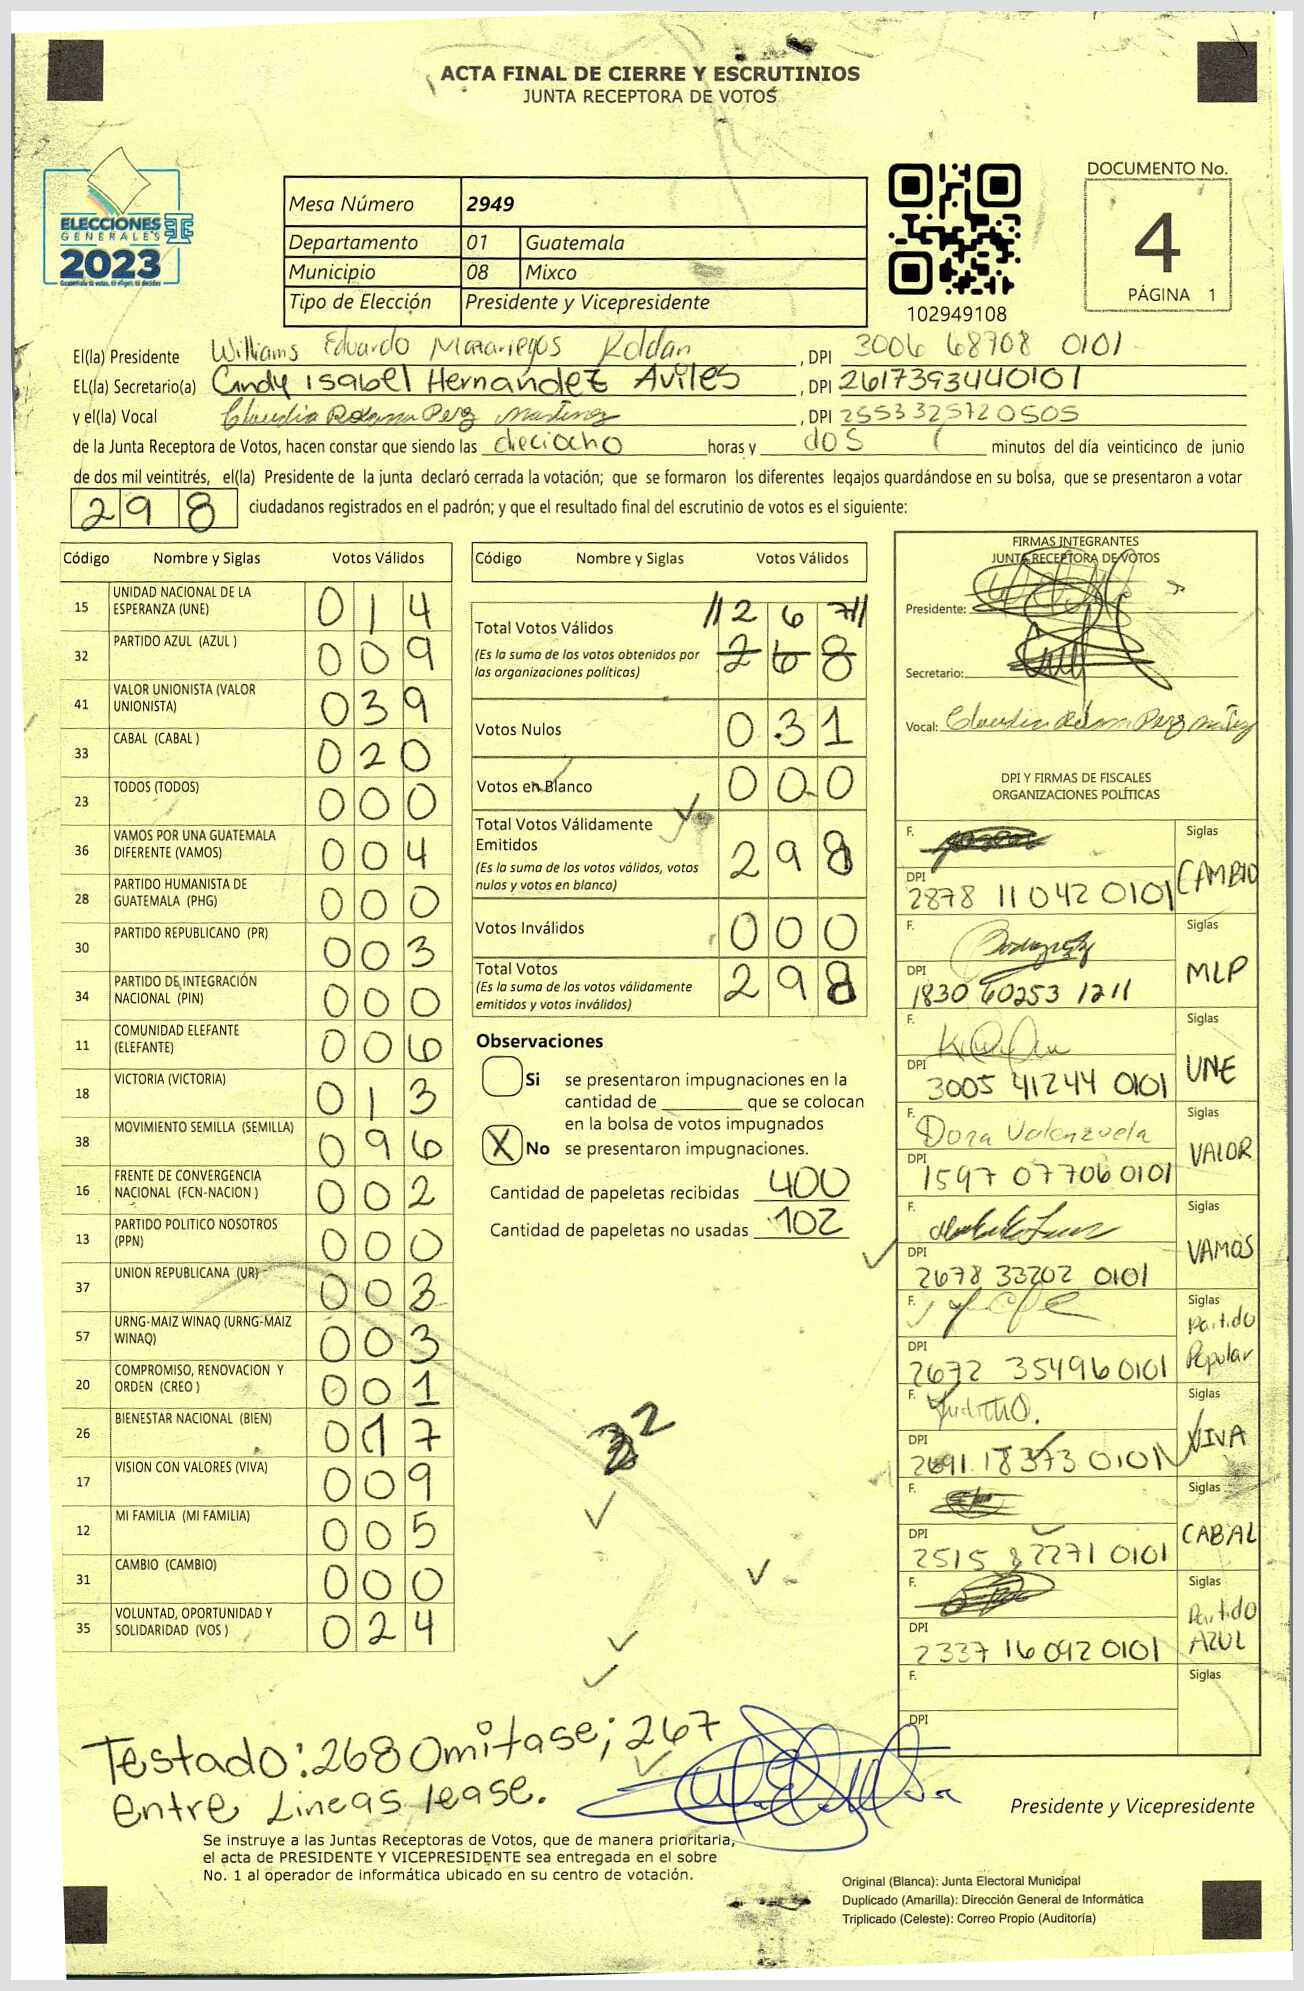 ACTA FINAL DE CIERRE Y ESCRUTINIOS
JUNTA RECEPTORA DE VOTOS
ELECCIONES
GENERALES
2023
Mesa Número 2949
Departamento 01 Guatemala
Municipio 08 Mixco
Tipo de Elección Presidente y Vicepresidente
102949108
DOCUMENTO No.
4
PÁGINA 1
El(la) Presidente Williams Eduardo Mazariegos Roldan, DPI 3006 68708 0101
EL(la) Secretario(a) Cindy isabel Hernandez Aviles, DPI 2617393440101
y el(la) Vocal Claudia Roxana Perez Martinez, DPI 2553325720505
de la Junta Receptora de Votos, hacen constar que siendo las dieciocho horas y dos minutos del día veinticinco de junio
de dos mil veintitrés, el(la) Presidente de la junta declaró cerrada la votación; que se formaron los diferentes legajos guardándose en su bolsa, que se presentaron a votar
298 ciudadanos registrados en el padrón; y que el resultado final del escrutinio de votos es el siguiente:
Código Nombre y Siglas Votos Válidos
15 UNIDAD NACIONAL DE LA ESPERANZA (UNE) 014
32 PARTIDO AZUL (AZUL ) 009
41 VALOR UNIONISTA (VALOR UNIONISTA) 039
33 CABAL (CABAL ) 020
23 TODOS (TODOS) 000
36 VAMOS POR UNA GUATEMALA DIFERENTE (VAMOS) 004
28 PARTIDO HUMANISTA DE GUATEMALA (PHG) 000
30 PARTIDO REPUBLICANO (PR) 003
34 PARTIDO DE INTEGRACIÓN NACIONAL (PIN) 000
11 COMUNIDAD ELEFANTE (ELEFANTE) 006
18 VICTORIA (VICTORIA) 013
38 MOVIMIENTO SEMILLA (SEMILLA) 096
16 FRENTE DE CONVERGENCIA NACIONAL (FCN-NACION ) 002
13 PARTIDO POLITICO NOSOTROS (PPN) 000
37 UNION REPUBLICANA (UR) 003
57 URNG-MAIZ WINAQ (URNG-MAIZ WINAQ) 003
20 COMPROMISO, RENOVACION Y ORDEN (CREO ) 001
26 BIENESTAR NACIONAL (BIEN) 017
17 VISION CON VALORES (VIVA) 009
12 MI FAMILIA (MI FAMILIA) 005
31 CAMBIO (CAMBIO) 000
35 VOLUNTAD, OPORTUNIDAD Y SOLIDARIDAD (VOS ) 024
Código Nombre y Siglas Votos Válidos
Total Votos Válidos //267//
(Es la suma de los votos obtenidos por las organizaciones políticas) 268
Votos Nulos 031
Votos en Blanco 000
Total Votos Válidamente Emitidos
(Es la suma de los votos válidos, votos nulos y votos en blanco) 298
Votos Inválidos 000
Total Votos
(Es la suma de los votos válidamente emitidos y votos inválidos) 298
Observaciones
Si se presentaron impugnaciones en la
cantidad de ________ que se colocan
en la bolsa de votos impugnados
X No se presentaron impugnaciones.
Cantidad de papeletas recibidas 400
Cantidad de papeletas no usadas 102
FIRMAS INTEGRANTES
JUNTA RECEPTORA DE VOTOS
Presidente:
Secretario:
Vocal: Claudia Roxana Perez Martinez
DPI Y FIRMAS DE FISCALES
ORGANIZACIONES POLÍTICAS
F. Siglas
DPI 2878 11042 0101 CAMBIO
F. Siglas
DPI 1830 60253 1211 MLP
F. Siglas
DPI 3005 41244 0101 UNE
F. Dora Valenzuela Siglas
DPI 1597 07706 0101 VALOR
F. Siglas
DPI 2678 33202 0101 VAMOS
F. Siglas
DPI 2672 35496 0101 Partido Popular
F. Judith O. Siglas
DPI 2691 18373 0101 VIVA
F. Siglas
DPI 2515 82271 0101 CABAL
F. Siglas
DPI 2337 16092 0101 Partido AZUL
F. Siglas
DPI
2
Testado: 268 Omitase; 267
entre Lineas lease.
Presidente y Vicepresidente
Se instruye a las Juntas Receptoras de Votos, que de manera prioritaria,
el acta de PRESIDENTE Y VICEPRESIDENTE sea entregada en el sobre
No. 1 al operador de informática ubicado en su centro de votación.
Original (Blanca): Junta Electoral Municipal
Duplicado (Amarilla): Dirección General de Informática
Triplicado (Celeste): Correo Propio (Auditoría)